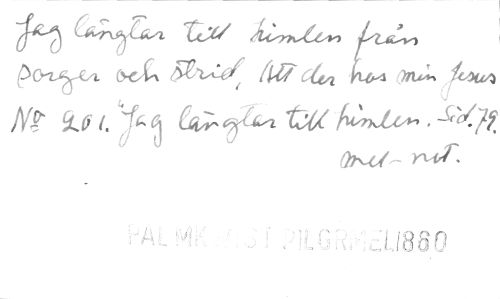 Jag längtar till himlen från
sorger och strid, Att der hos min Jesus
No 201. "Jag längtar till himlen. Sid. 79.
mel-not.
PALMKVIST PILGRMEL1880